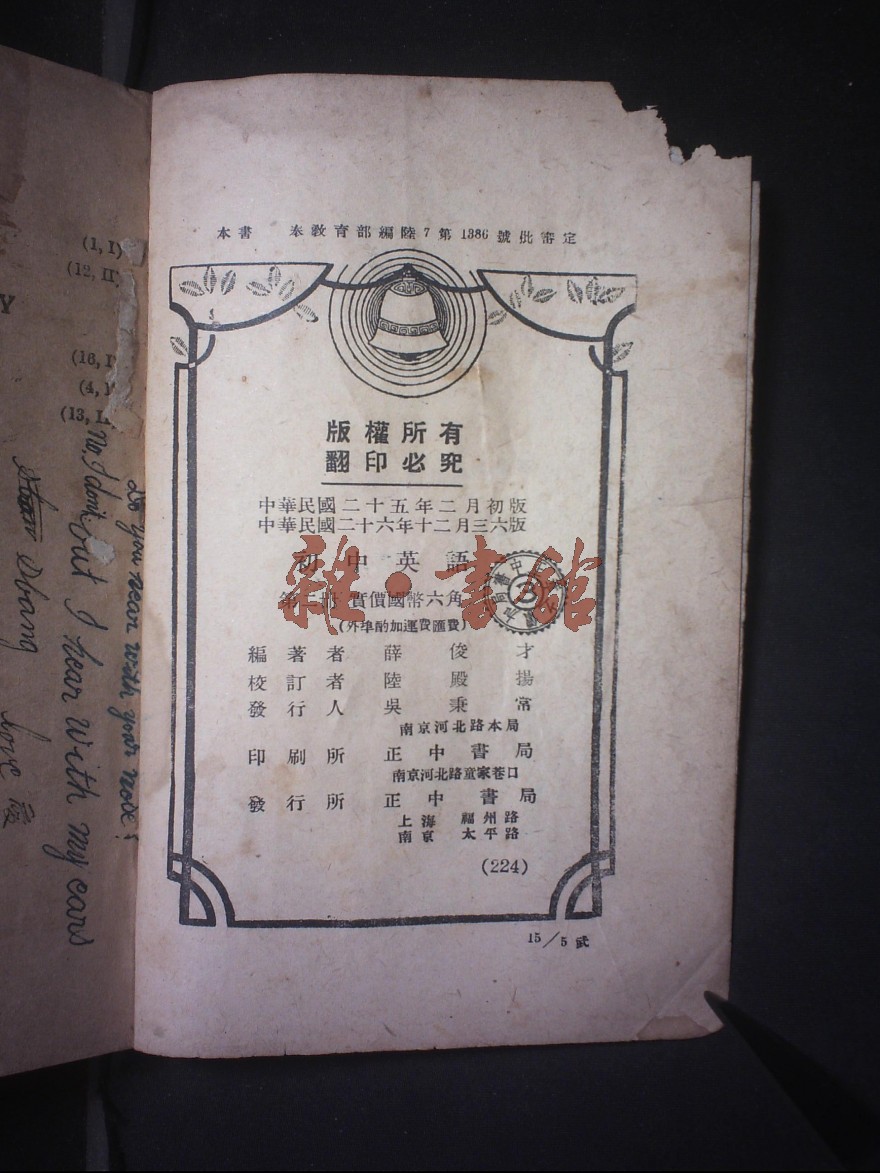 (1, I)
(12, II)
Y
(16, I
(4, I
(13, I
Do you hear with your nose?
No, I don't but I hear with my ears
love
本書 奉教育部編陸7第1386號批審定
版權所有
翻印必究
中華民國二十五年二月初版
中華民國二十六年十二月三六版
初中英語
第二冊 實價國幣六角
(外埠酌加運費匯費)
編著者 薛俊才
校訂者 陸殿揚
發行人 吳秉常
南京河北路本局
印刷所 正中書局
南京河北路童家巷口
發行所 正中書局
上海 福州路
南京 太平路
(224)
15/5 武
雜·書館